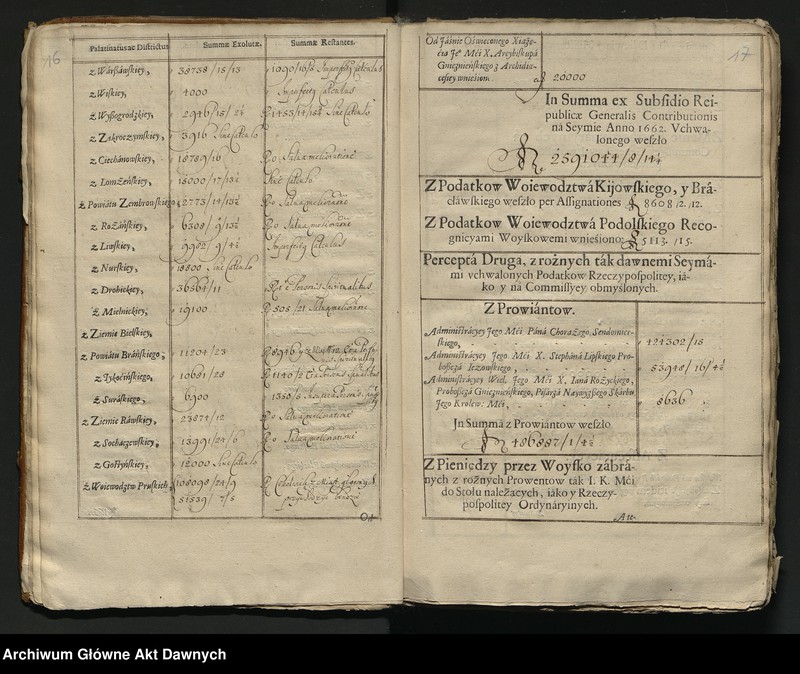 16
Palatinatus ac Districtus Summæ Exolutæ. Summæ Restantes.
z Wárßáwskiey, 38738/15/13 1090/16/8 Imperfecty calculus
z Wiskiey, 4000 Imperfecty Calculus
z Wyßogrodzkiey, 2946/15/ Sine Calculo
z Zakroczymskiey, 3916 Sine Calculo
z Ciechánowskiey, 18789/16 Ro Salua melioratione
z Łomżeńskiey, 15000/17/13½ Sine Calculo
z Powiátu Zembrowskiego, 2773/14/13½ Ro Salua melioratione
z Rożáńskiey, 6308/9/13½ Ro Salua melioratione
z Liwskiey, 9902/9/4½ Imperfecty Calculus
z Nurskiey, 18800 Sine Calculo
z Drohickiey, 36564/11
z Mielnickiey, 19100 R 505/21 Salua melioratione
z Ziemie Bielskiey,
z Powiátu Bráńskiego, 11204/23
z Tykocińskiego, 10681/28 R 1140/2
z Suráskiego, 6900 1350/8
z Ziemie Ráwskiey, 23874/12 Ro Salua melioratione
z Socháczewskiey, 13991/24/6 Ro Salua melioratione
z Gostyńskiey, 12000 Sine Calculo
z Woiewodztw Pruskich, 108098/24/9
51539/7/5
Od
17
Od Jáśnie Oświeconego Xiążę-
ćiá Je° Mći X. Arcybiskupá
Gnieznieńskiego z Archidiæ-
cesiey wnieśiono. 20000
In Summa ex Subsidio Rei-
publicæ Generalis Contributionis
ná Seymie Anno 1662. Vchwa-
lonego weszło
2591044/8/14¼
Z Podatkow Woiewodztwá Kijowskiego, y Brá-
cłáwskiego weszło per Assignationes 8608/2./12.
Z Podatkow Woiewodztwá Podolskiego Reco-
gnicyami Woyskowemi wnieśiono: 5113. /15.
Perceptá Druga, z rożnych ták dawnemi Seymá-
mi vchwalonych Podatkow Rzeczypospolitey, iá-
ko y ná Commissyey obmyślonych.
Z Prowiántow.
Administrácyey Jego Mći Páná Chorążego, Sendomier-
skiego, 424302/15
Administrácyey Jego Mći X. Stephaná Lipskiego Pro-
boszczá Iezowskiego, 53948/16/4½
Administrácyey Wiel. Jego Mći X. Ianá Rożyckiego,
Proboszczá Gnieznieńskiego, Pisarzá Naywyższego Skarbu
Jego Krolew: Mći, 8636
In Summá z Prowiántow weszło
486887/1/4½
Z Pieniędzy przez Woysko zábrá-
nych z rożnych Prowentow ták I. K. Mći
do Stołu należących, iáko y Rzeczy-
pospolitey Ordynáryinych.
Att-
Archiwum Główne Akt Dawnych